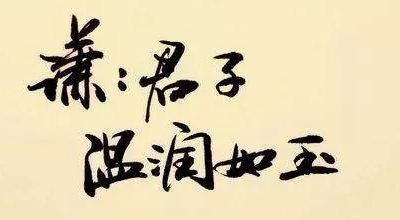 谦：君子
温润如玉